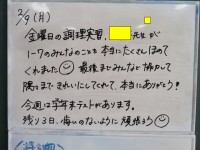 2/9(月)
金曜日の調理実習、 先生が
1-7のみんなのことを本当にたくさんほめて
くれました 最後までみんなと協力して
隅々まできれいにしてくれて、本当にありがとう!
今週は学年末テストがあります。
残り3日、悔いのないように頑張ろう